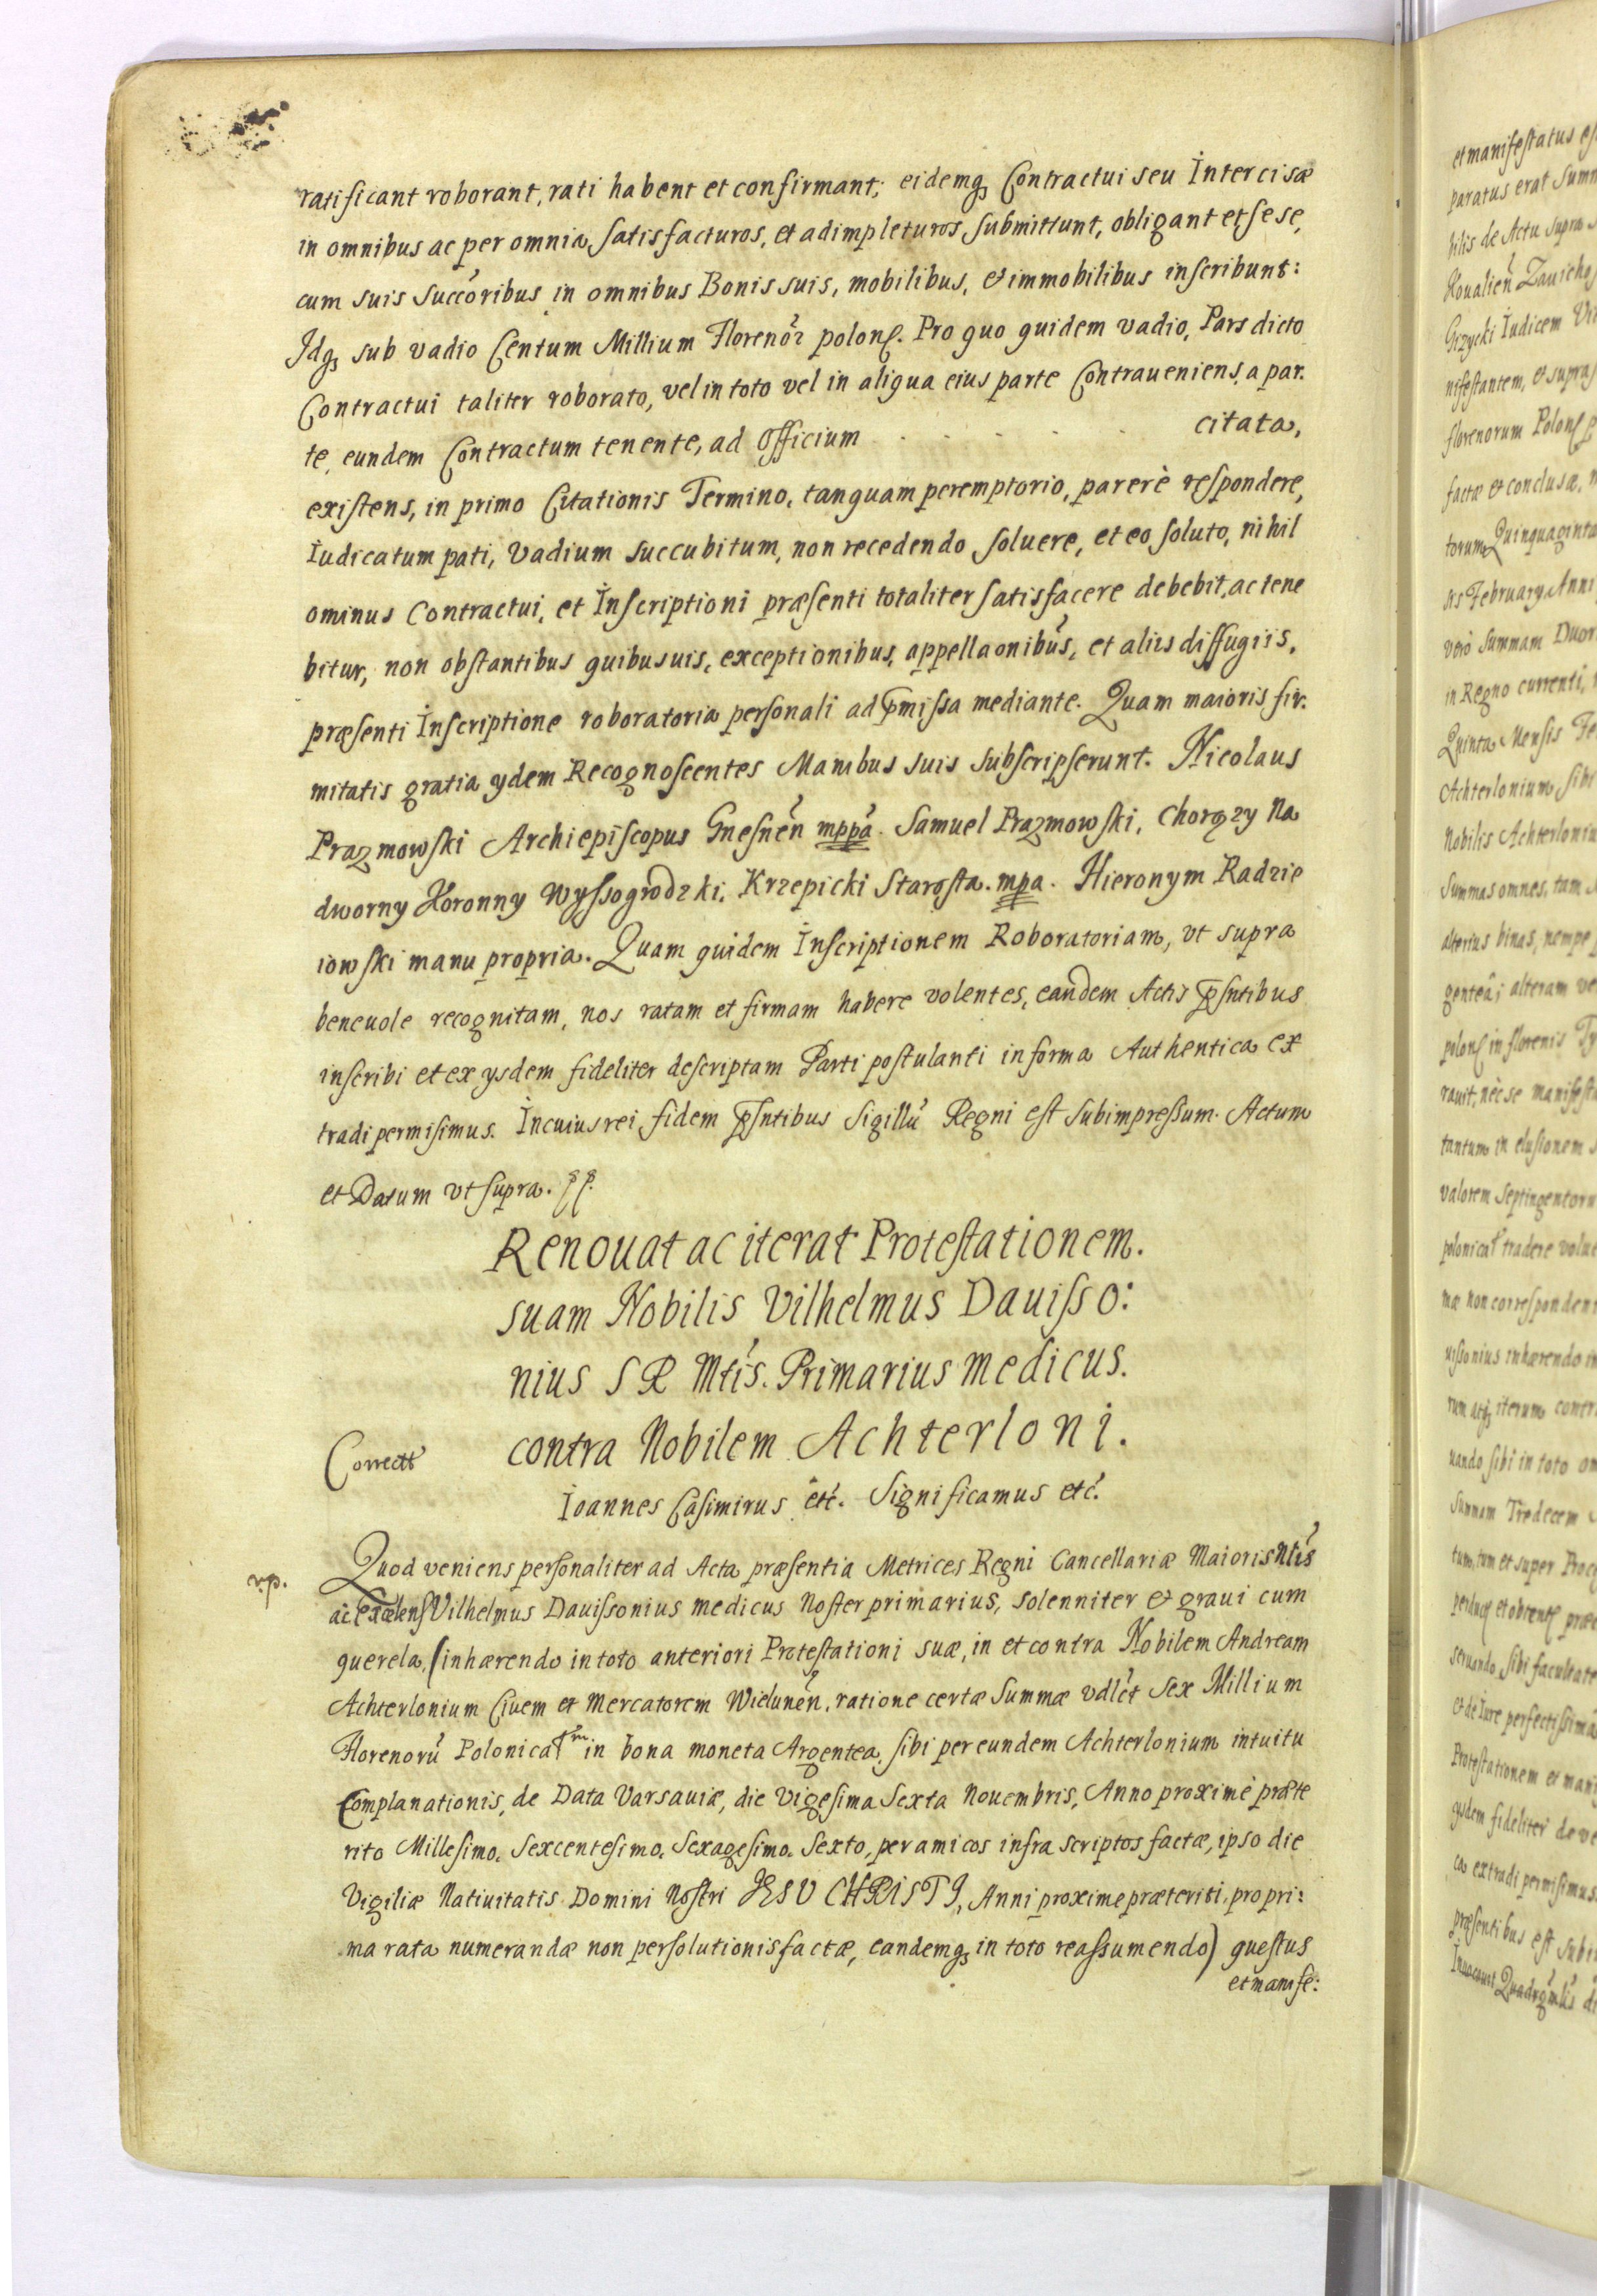 ratificant roborant, rati habent et confirmant, eidemq Contractui seu Intercisæ
in omnibus ac per omnia, satisfacturos, et adimpleturos, submittunt, obligant et sese,
cum suis Succōribus in omnibus Bonis suis, mobilibus, & immobilibus inscribunt:
Idq sub vadio Centum Millium Florenor polon. Pro quo quidem vadio, Pars dicto
Contractui taliter roborato, vel in toto vel in aliqua eius parte Contraueniens, a par.
te, eundem Contractum tenente, ad Officium . . . . . citata,
existens, in primo Citationis Termino, tanquam peremptorio, parere respondere,
Iudicatum pati, Vadium succubitum, non recedendo soluere, et eo soluto, nihil
ominus Contractui, et Inscriptioni præsenti totaliter satisfacere debebit, ac tene
bitur, non obstantibus quibusuis, exceptionibus, appellaonibus, et aliis diffugiis,
præsenti Inscriptione roboratoria personali ad pmissa mediante. Quam maioris fir.
mitatis gratia ydem Recognoscentes Manibus suis subscripserunt. Nicolaus
Prazmowski Archiepiscopus Gnesnen mppa. Samuel Prazmowski, Chorązy Na
dworny Koronny Wyssogrodzki, Krzepicki Starosta. mpa. Hieronym Radzie
iowski manu propria. Quam quidem Inscriptionem Roboratoriam, vt supra
beneuole recognitam, nos ratam et firmam habere volentes, eandem Actis psntibus
inscribi et ex ysdem fideliter descriptam Parti postulanti in forma Authentica ex
tradi permisimus. In cuius rei fidem psntibus Sigillu Regni est subimpressum. Actum
et Datum vt supra. pp.
Renouat ac iterat Protestationem.
suam Nobilis Vilhelmus Dauisso:
nius S R Mtis. Primarius medicus.
contra Nobilem Achterloni.
Correctt
Ioannes Casimirus etc. Significamus etc.
Quod veniens personaliter ad Acta præsentia Metrices Regni Cancellariæ Maioris Nlis
vp.
ac Excelens Vilhelmus Dauissonius medicus Noster primarius, solenniter & graui cum
querela, (inhærendo in toto anteriori Protestationi suæ, in et contra Nobilem Andream
Achterlonium Ciuem et Mercatorem Wielunen, ratione certæ Summæ vdlet Sex Millium
Florenoru Polonical in bona moneta Argentea, sibi per eundem Achterlonium intuitu
Complanationis, de Data Varsauiæ, die Vigesima Sexta Nouembris, Anno proxime præte
rito Millesimo, Sexcentesimo, Sexagesimo, Sexto, per amicos infra scriptos factæ, ipso die
Vigiliæ Natiuitatis Domini Nostri JESU CHRISTI, Anni proxime præteriti, pro pri:
ma rata numerandæ non persolutionis factæ, eandemq in toto reassumendo) questus
et manife:
et manifestatus es
paratus erat Summ
bilis de Actu supra
Grzycki Iudicem
nifestantem, & supra
florenorum Polon
factæ et conclusæ,
torum Quinquaginta
February Anni
vero Summam Duor
in Regno currenti,
Quinta Mensis Fe
Achterlonium sibi
Nobilis Achterloniu
Summas omnes, tam
alterius binas, nempe
gentea; alteram ve
polon in florenis Ty
rauit, nec se manifest
tantum in elusionem
valorem Septingentoru
tradere volu
mæ non corresponden
uissonius inhærendo in
rum atq iterum contr
uando sibi in toto om
Summam Tredecem
tum, tum et super
seruando sibi facultate
& de Iure perfectissima
Protestationem et mani
ysdem fideliter de ve
ca extradi permisimus
præsentibus est subi